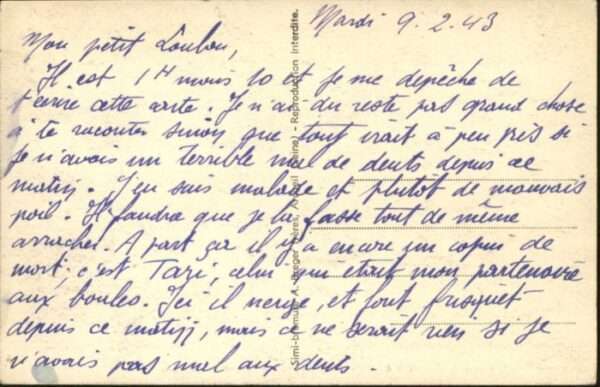 Mardi 9.2.43
Mon petit Loulou,
Il est 14 h moins 10 et je me depêche de
t'écrire cette carte. Je n'ai du reste pas grand chose
à te raconter sinon que tout irait à peu près si
je n'avais un terrible mal de dents depuis ce
matin. J'en suis malade et plutôt de mauvais
poil. Il faudra que je la fasse tout de même
arracher. A part ça il y a encore un copain de
mort; c'est Tazi, celui qui était mon partenaire
aux boules. Ici il neige, et fait frisquet
depuis ce matin, mais ce ne serait rien si je
n'avais pas mal aux dents.
Simi-bromure A. Breger frères, Argenteuil (Seine). - Reproduction interdite.